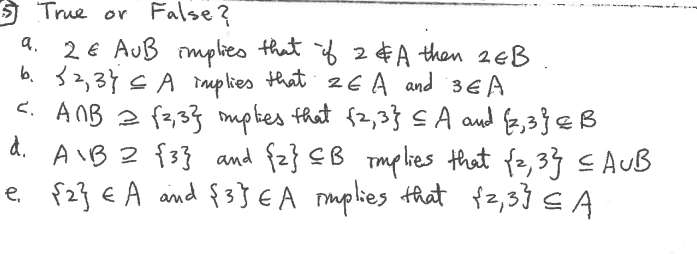 5) True or False?
a. 2 ∈ A∪B implies that if 2 ∉ A then 2 ∈ B.
b. {2,3} ⊆ A implies that 2 ∈ A and 3 ∈ A
c. A∩B ⊇ {2,3} implies that {2,3} ⊆ A and {2,3} ⊆ B
d. A\B ⊇ {3} and {2} ⊆ B implies that {2,3} ⊆ A∪B
e. {2} ∈ A and {3} ∈ A implies that {2,3} ⊆ A